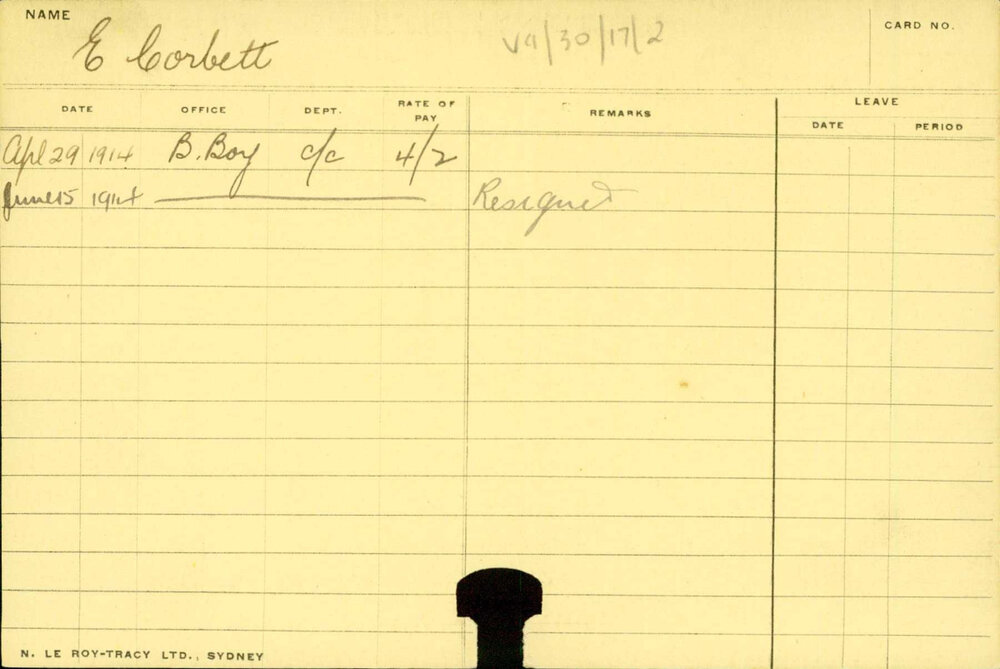 NAME E Corbett VA/30/17/2 CARD NO.
DATE OFFICE DEPT. RATE OF PAY REMARKS LEAVE
DATE PERIOD
Apl 29 1914 B. Boy c/c 4/2
June 15 1914 Resigned
N. LE ROY-TRACY LTD., SYDNEY